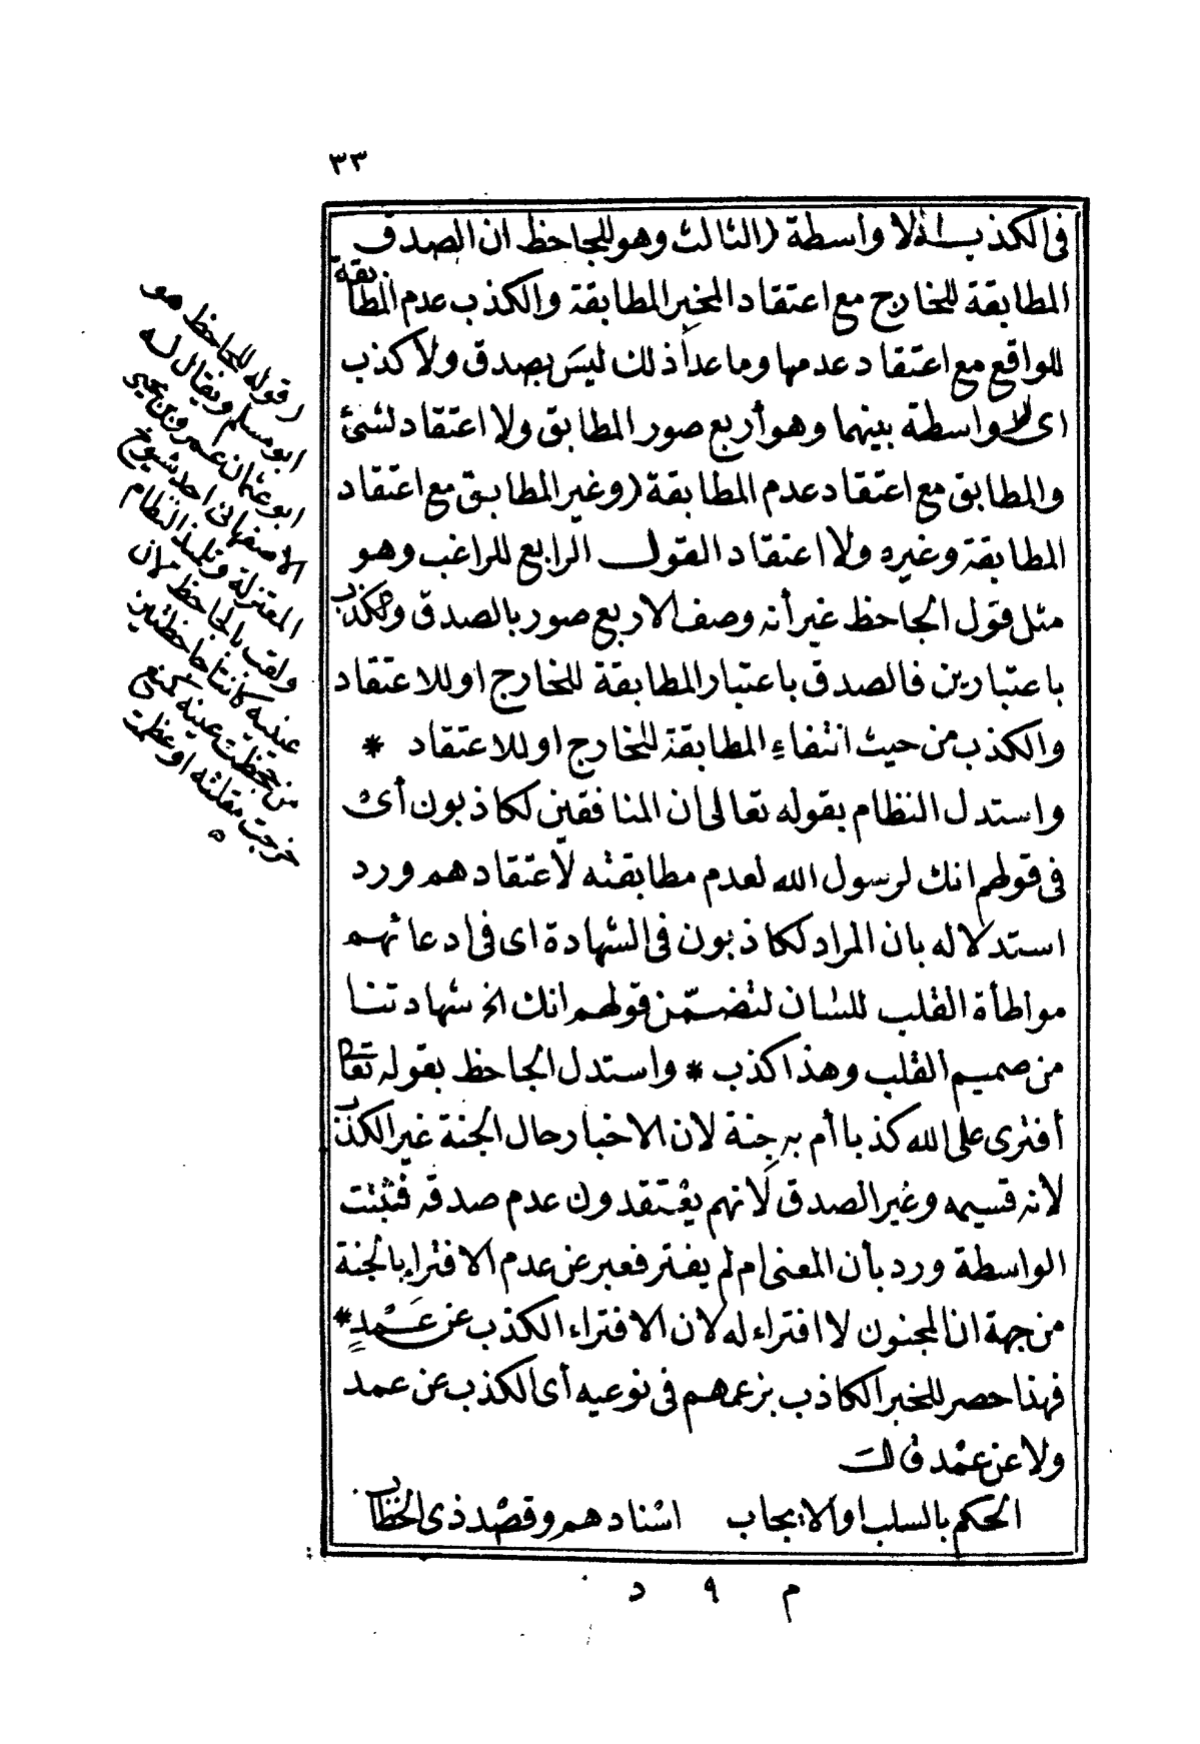 ٣٣
في الكذب انه لا واسطة (الثالث وهو للجاحظ ان الصدق
المطابقة للخارج مع اعتقاد المخبر المطابقة والكذب عدم المطابقة
للواقع مع اعتقاد عدمها وما عدا ذلك ليسَ بصدق ولا كذب
اى واسطة بينهما وهو أربع صور المطابق ولا اعتقاد لشئ
والمطابق مع اعتقاد عدم المطابقة (وغير المطابق مع اعتقاد
المطابقة وغيره ولا اعتقاد القول الرابع للراغب وهو
مثل قول الجاحظ غير أنه وصف الاربع صور بالصدق والكذب
باعتبارين فالصدق باعتبار المطابقة للخارج او للاعتقاد
والكذب من حيث انتفاءِ المطابقة للخارج او للاعتقاد *
واستدل النظام بقوله تعالى ان المنافقين لكاذبون أى
فى قولهم انك لرسول الله لعدم مطابقته لاعتقادهم ورد
استدلاله بان المراد لكاذبون فى الشهادة اى فى ادعائهم
مواطأة القلب للسان لتضمّن قولهم انك الخ شهادتنا
من صميم القلب وهذا كذب * واستدل الجاحظ بقوله تعا
أفترى على الله كذبا أم به جِنة لان الاخبار حال الجنة غير الكذب
لانه قسيمه وغير الصدق لانهم يعْتقدون عدم صدقه فثبتت
الواسطة ورد بأن المعنى ام لم يفتر فعبر عن عدم الافتراء بالجنة
من جهة ان المجنون لا افتراء له لان الافتراء الكذب عن عَمْدٍ *
فهذا حصر للخبر الكاذب بزعمهم فى نوعيه أى الكذب عن عمد
ولا عن عمْد قال
الحكم بالسلب او الايجاب اسْنادهم وقصْد ذى الخطاب
م ٩ د
(قوله للجاحظ هو
ابو مسلم ويقال له
ابو عثمان عمرو بن بحيى
الاصفهانى احد شيوخ
المعتزلة وتلميذ النظام
ولقب بالجاحظ لان
عينيه كانتا جاحظتين
من جحظت عينه كمنع
خرجت مقلته او عظمت
ه